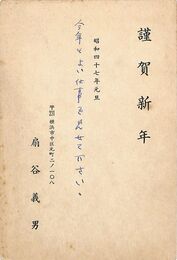 謹賀新年
昭和四十七年元旦
今年もよい仕事を見せて下さい。
横浜市中区元町二ノ一〇八
扇谷義男